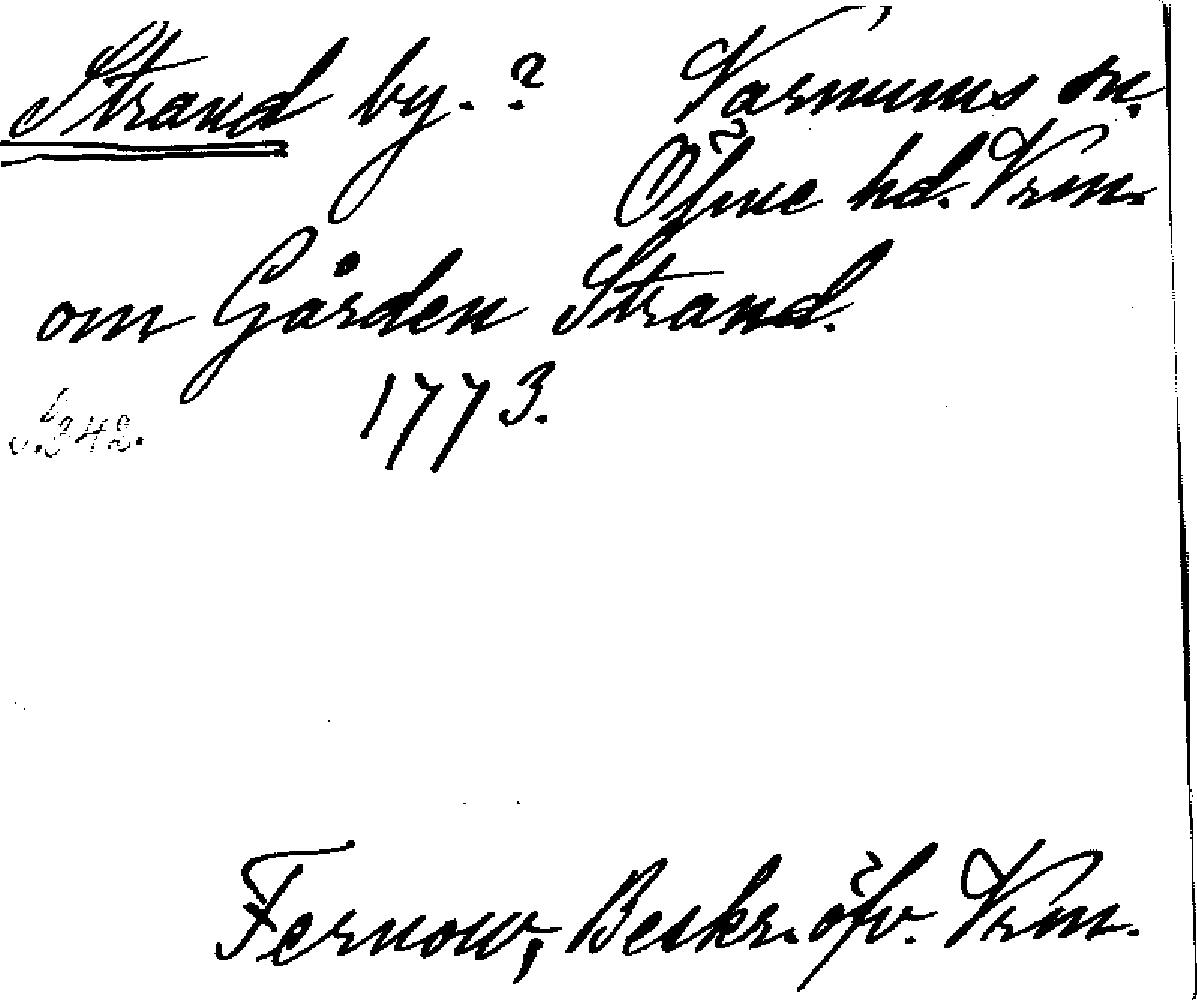 Strand by. ? Varnums sn.
Ölme hd. Vrm.
om Gården Strand.
1773.
S. 342.
Fernow, Beskr. öfv. Vrm.